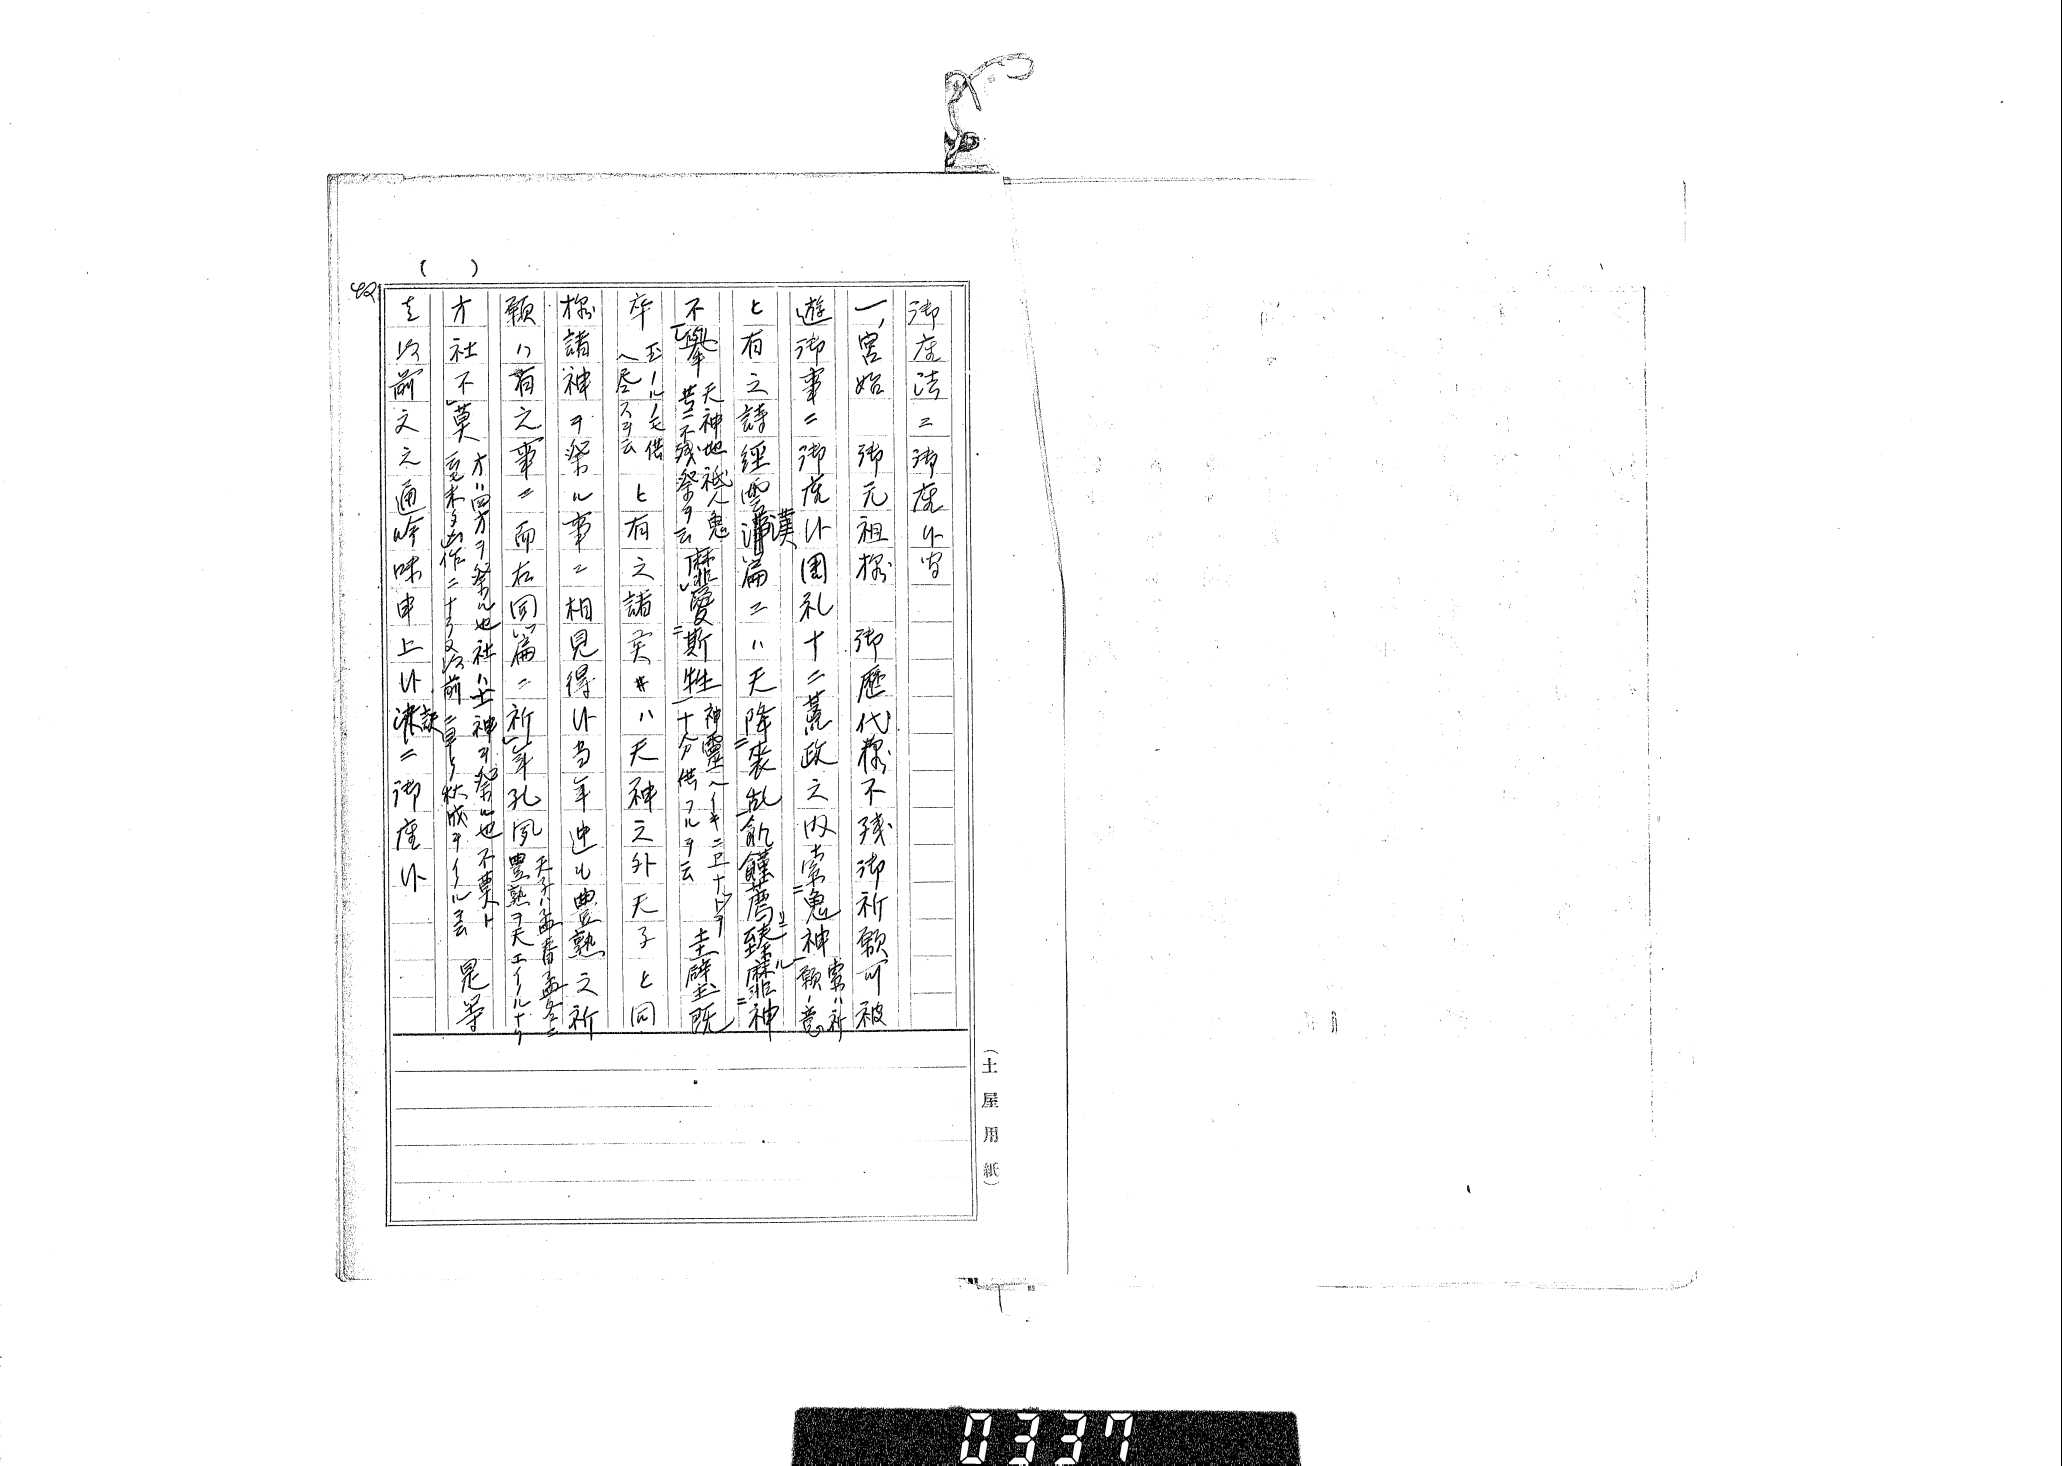 御座法ニ御座候間
一、宮始 御元祖様 御歴代様不残御祈願可被
遊御事ニ御座候周礼十二荒政之内索鬼神索ハ祈願ノ意
と有之詩經雲漢篇ニハ天降喪乱飢饉薦臻靡神
不擧天神地祇人鬼共ニ不残祭ヲ云靡愛斯牲神靈ヘイキニエナトヲ十分供フルヲ云圭璧既
卒玉ノルイモ供ヘ尽スヲ云と有之諸矦ハ天神之外天子と同
様諸神ヲ祭ル事ニ相見得候当年迚も豊熟之祈
願ハ有之事ニ而右同篇ニ祈年孔夙天子ハ孟春孟冬ニ豊熟ヲ天エイノルナリ
方社不莫方ハ四方ヲ祭ル也社ハ土神ヲ祭ル也不莫ト前ニ早ク秋成ヲイノルヲ云是等
を以前文之通吟味申上候訣ニ御座候
42
(土屋用紙)
0337